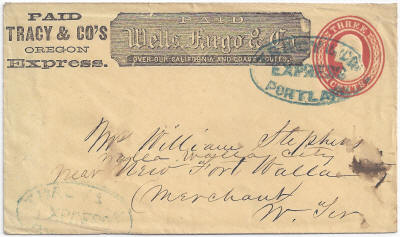 PAID
TRACY & CO'S
OREGON
Express.
PAID
Wells, Fargo & Co.
OVER OUR CALIFORNIA AND COAST ROUTES.
THREE
CENTS
EXPRESS
PORTLAND
Mr William Stephens
Walla Walla City
near New Fort Walla
Merchant
W. Ter
EXPRESS